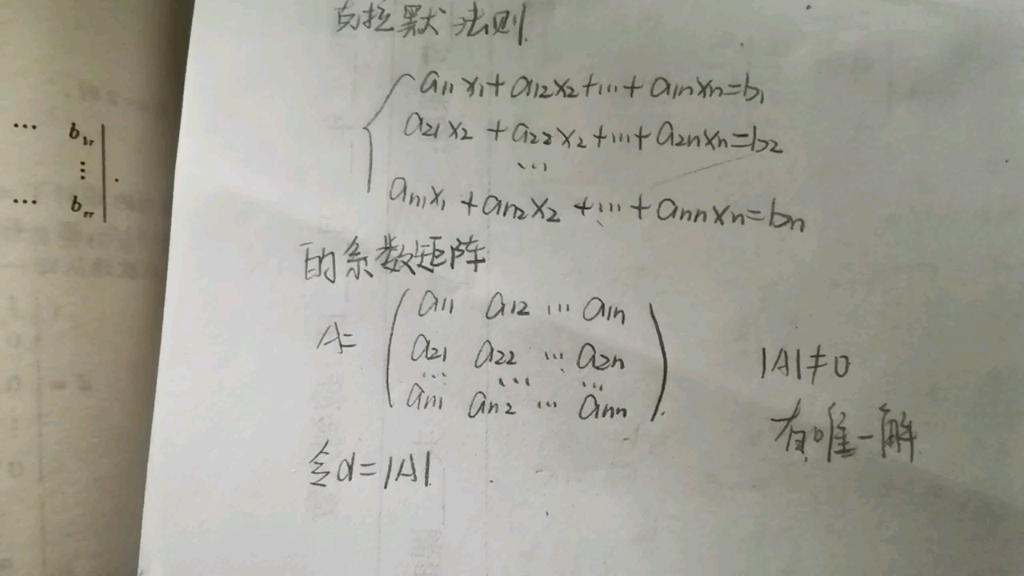 克拉默法则
a11 x1 + a12 x2 + ... + a1n xn = b1
a21 x2 + a22 x2 + ... + a2n xn = b2
...
an1 x1 + an2 x2 + ... + ann xn = bn
的系数矩阵
A= ( a11 a12 ... a1n
a21 a22 ... a2n
... ... ...
an1 an2 ... ann )
|A|≠0
有唯一解
令d=|A|
... b1r
⋮
... brr